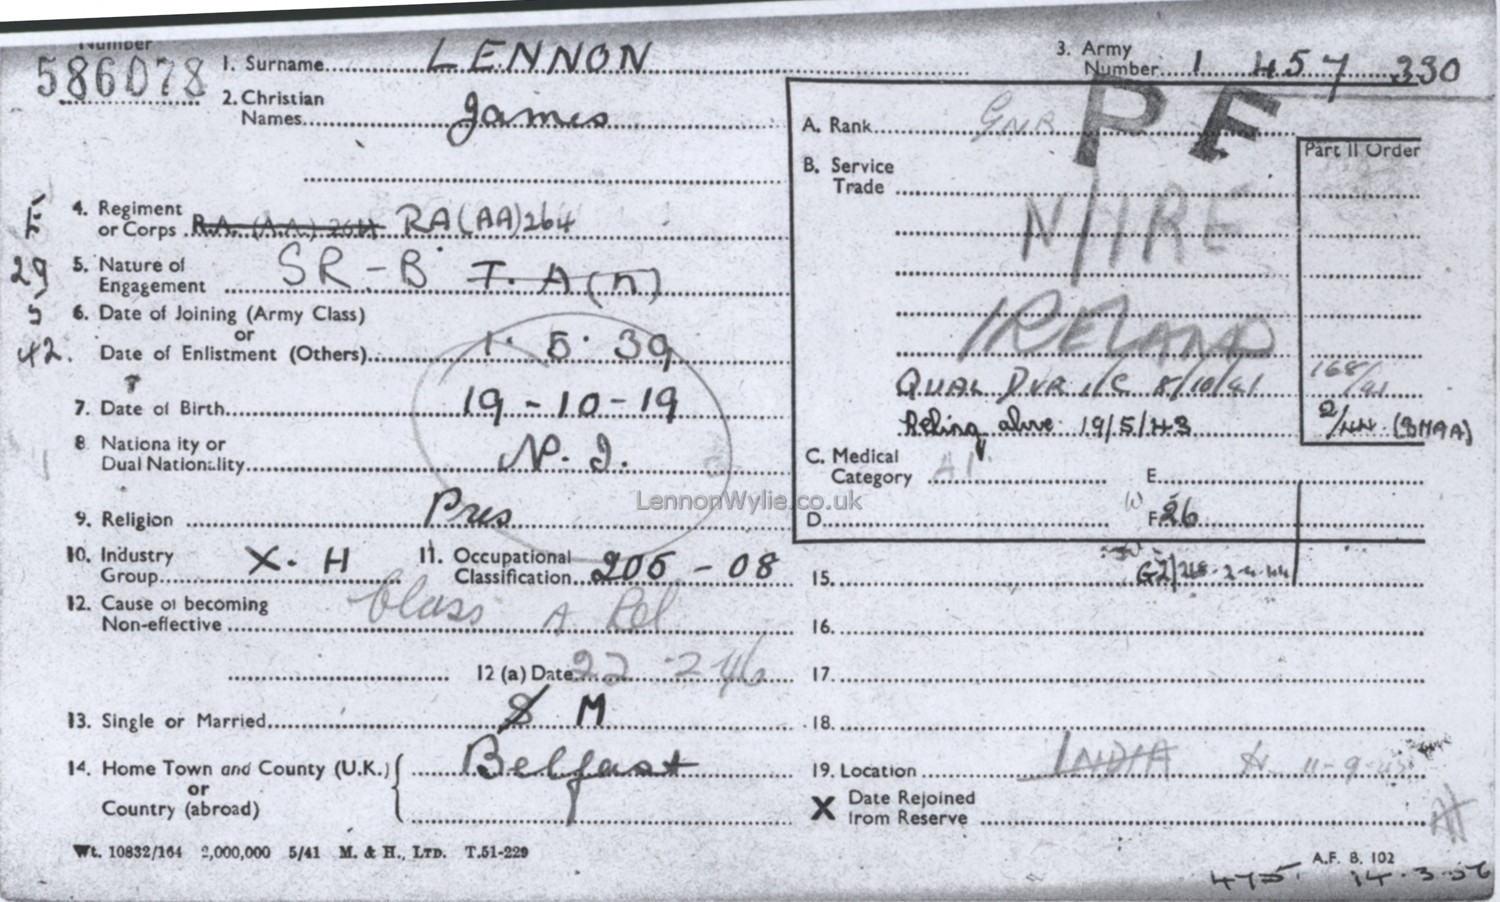 Number
586078
1. Surname LENNON
3. Army Number 1 457 330
2. Christian Names James
A. Rank GNR
PE
Part II Order
B. Service Trade
N/IRE
4. Regiment or Corps R.A. (A.A.) 264 RA(AA)264
5. Nature of Engagement SR-B T.A(N)
29
5
42.
6. Date of Joining (Army Class)
or
Date of Enlistment (Others) 1. 5. 39
IRELAND
QUAL DVR I/C 8/10/41 168/41
7. Date of Birth 19-10-19
Reling alive 19/5/43 2/44 (3HAA)
8 Nationality or Dual Nationality N.I.
C. Medical Category A1
E.
LennonWylie.co.uk
9. Religion Pres
D.
F. 26
10. Industry Group X. H
11. Occupational Classification 205-08
15.
12. Cause of becoming Non-effective Class A Rel
16.
12 (a) Date 22 2 46
17.
13. Single or Married S M
18.
14. Home Town and County (U.K.) Belfast
or
Country (abroad)
19. Location INDIA
X Date Rejoined from Reserve
Wt. 10832/164 2,000,000 5/41 M. & H., LTD. T.51-229
A.F. B. 102
475. 14.3.56